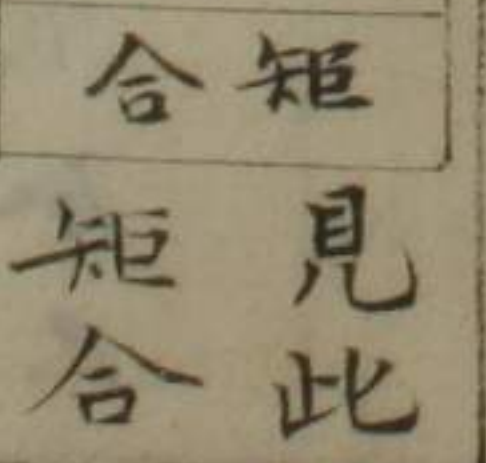 矩合
見此
矩合